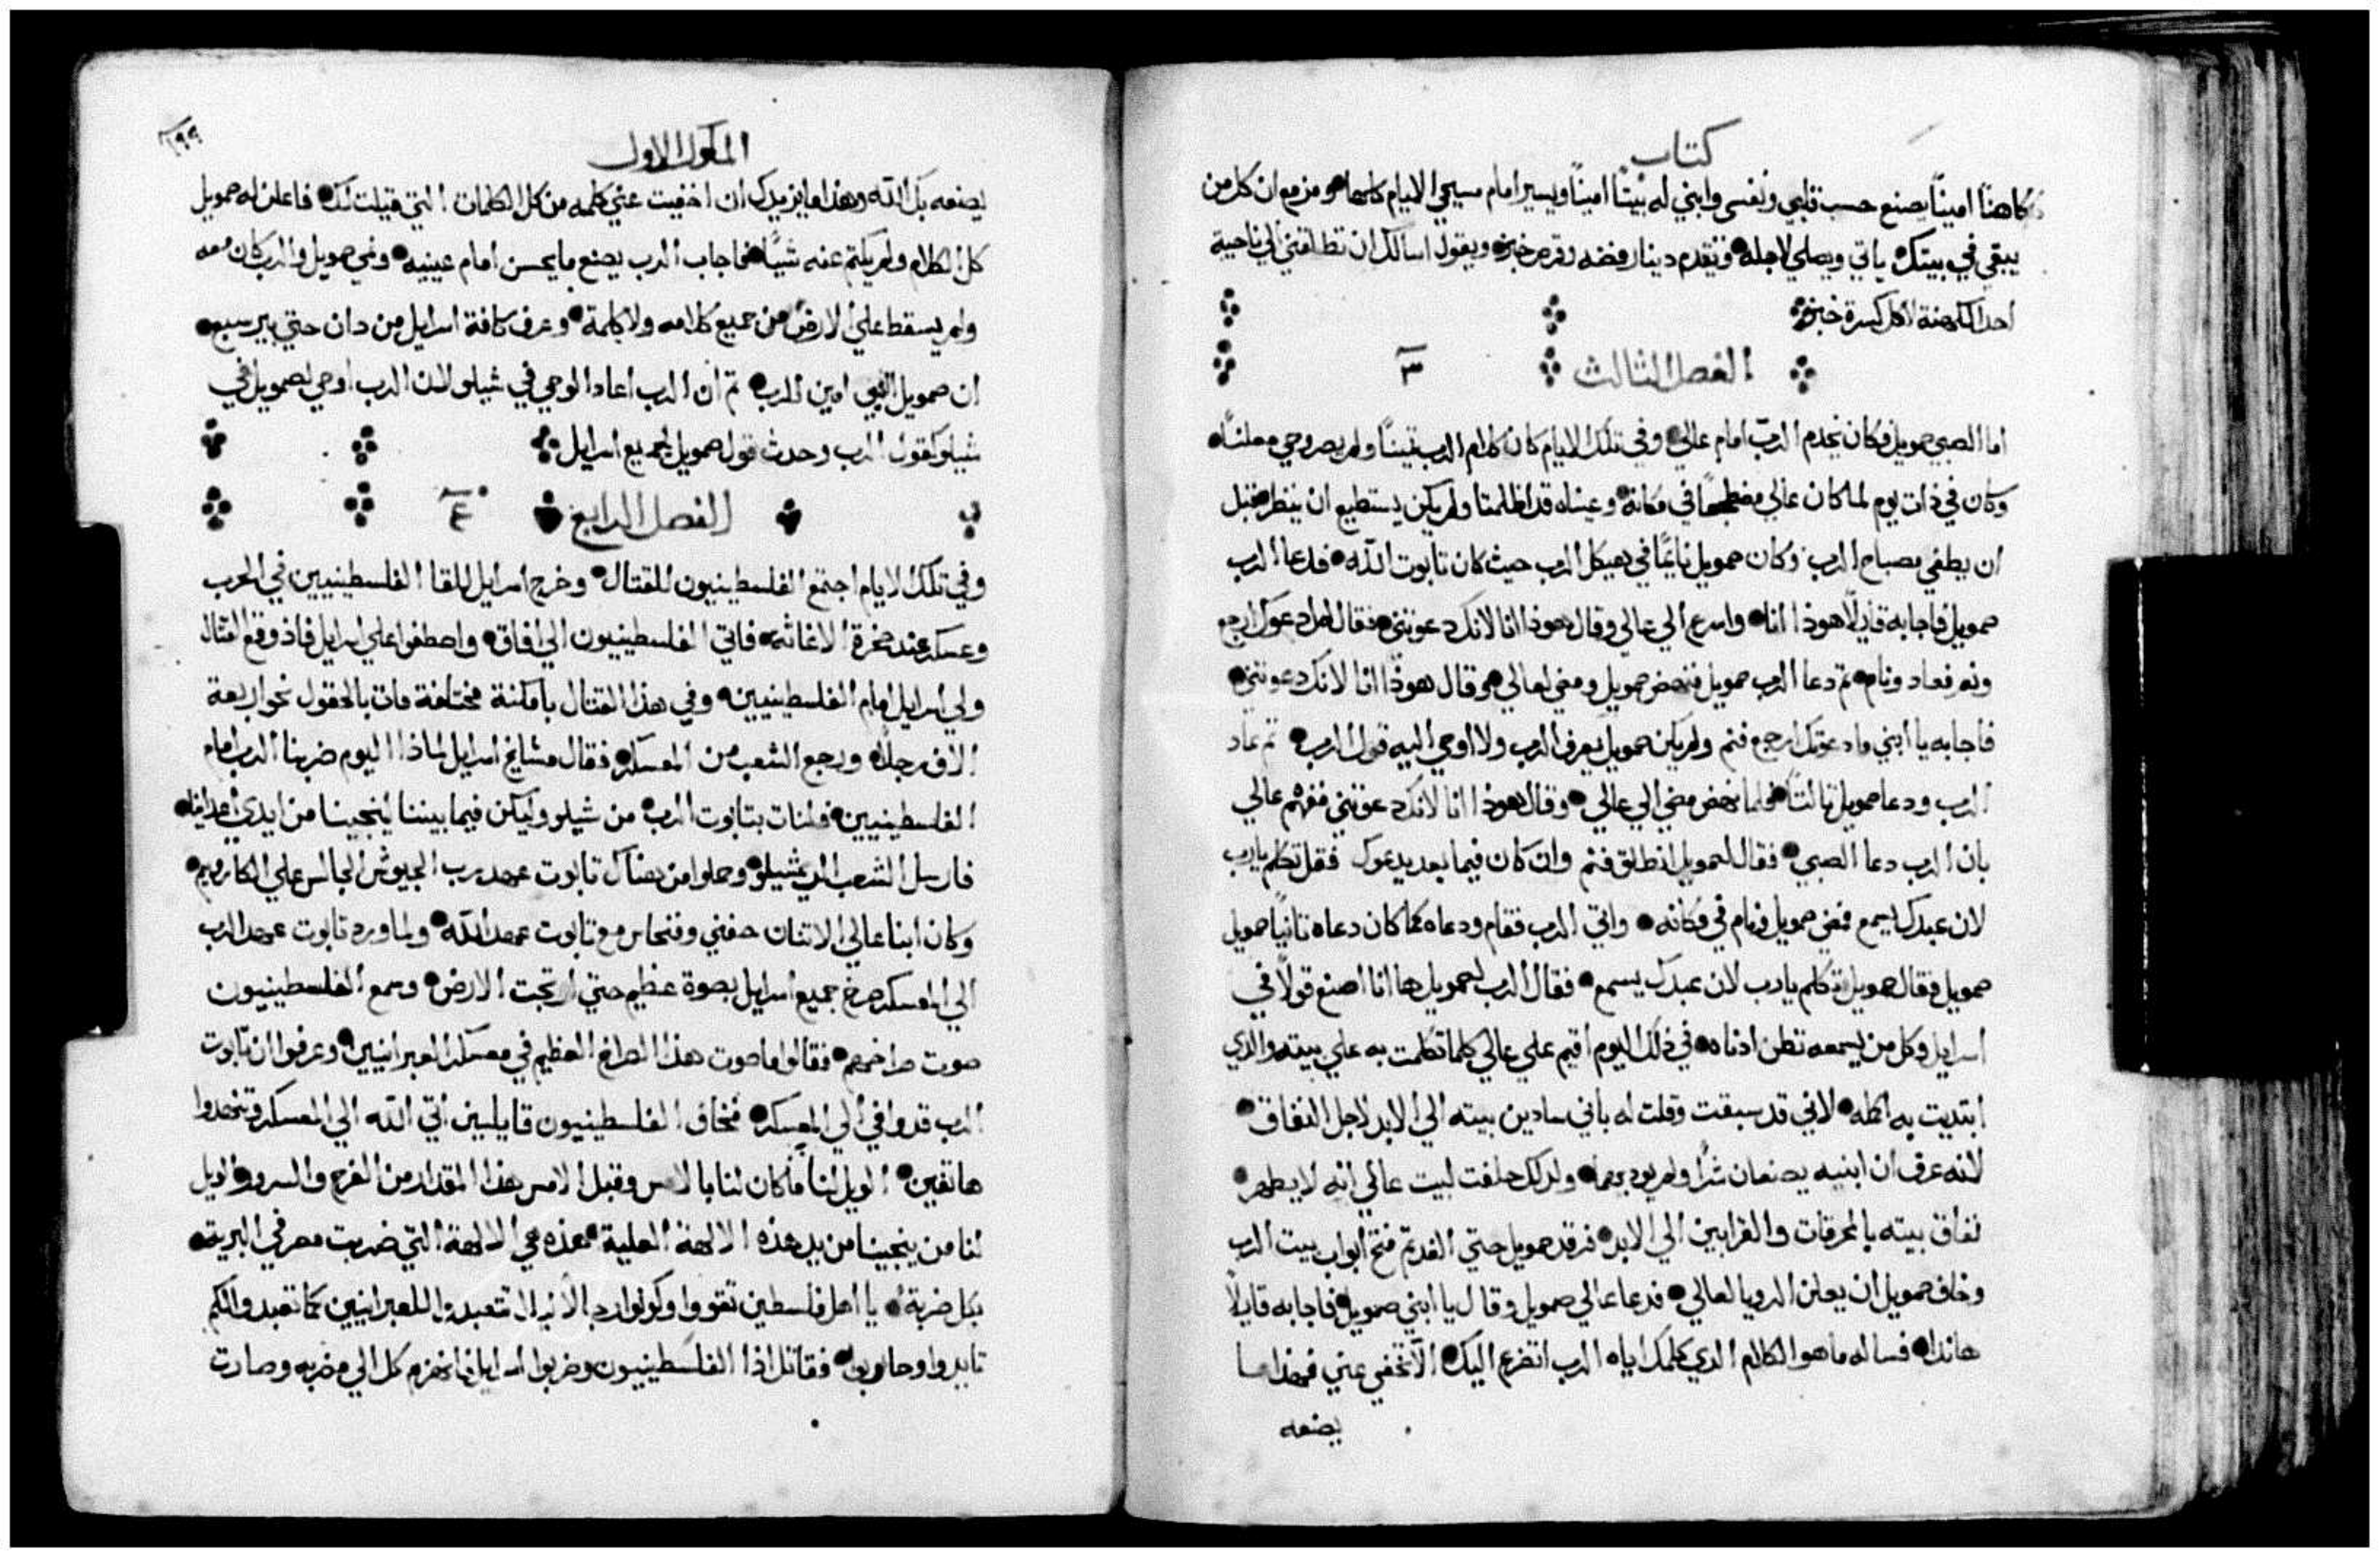 كتاب
كاهنًا امينًا يصنع حسب قلبي ونفسي وابني له بيتًا امينًا ويسير امام مسيحي الايام كلها ومزمع ان كل من
يبقي في بيتك ياتي ويصلي لاجله وتقدم دينار فضه وقرص خبز ويقول اسالك ان تطلقني الي ناحية
احد الكهنة لاكل كسرة خبز
الفصل الثالث ٣
اما الصبي صمويل فكان يخدم الربّ امام عالي وفي تلك الايام كان كلام الرب ثمينًا ولم يصر وحي معلنًا
وكان في ذات يوم لما كان عالي مضطجعًا في مكانه وعيناه قد اظلمتا ولم يكن يستطيع ان ينظر قبل
ان يطفي مصباح الرب وكان صمويل نايمًا في هيكل الرب حيث كان تابوت الله فدعا الرب
صمويل فاجابه قايلًا هوذا انا واسرع الي عالي وقال هوذا انا لانك دعوتني فقال لم ادعوك ارجع
ونم فعاد ونام ثم دعا الرب صمويل فنهض صمويل ومضي لعالي وقال هوذا انا لانك دعوتني
فاجابه يا ابني ما دعوتك ارجع فنم ولم يكن صمويل يعرف الرب ولا اوحي اليه قول الرب ثم عاد
الرب ودعا صمويل ثالثًا فلما نهض مضي الي عالي وقال هوذا انا لانك دعوتني ففهم عالي
بان الرب دعا الصبي فقال لصمويل انطلق فنم وان كان فيما بعد يدعوك فقل تكلم يا رب
لان عبدك يسمع فمضي صمويل ونام في مكانه واتي الرب فقام ودعاه كما كان دعاه ثانيًا صمويل
صمويل فقال صمويل تكلم يا رب لان عبدك يسمع فقال الرب لصمويل ها انا اصنع قولًا في
اسرايل وكل من يسمعه تطن ادناه في ذلك اليوم اقيم علي عالي كلما تكلمت به علي بيته والذي
ابتديت به اكمله لاني قد سبقت وقلت له باني سادين بيته الي الابد لاجل النفاق
لانه عرف ان ابنيه يصنعان شرًا ولم يودبهما ولذلك حلفت لبيت عالي انه لا يطهر
نفاق بيته بالمحرقات والقرابين الي الابد فرقد صمويل حتي الغد ثم فتح ابواب بيت الرب
وخاف صمويل ان يعلن الرويا لعالي فدعا عالي صمويل وقال يا ابني صمويل فاجابه قايلًا
هانذا فساله ما هو الكلام الذي كلمك اياه الرب اتضرع اليك الّا تخفي عني فهذا ما
يصنعه
الملوك الاول
١٩٩
يصنعه بك الله وهذا ما يزيدك ان اخفيت عني كلمه من كل الكلمات التي قيلت لك فاعلن له صمويل
كل الكلام ولم يكتم عنه شيًا فاجاب الرب يصنع ما يحسن امام عينيه ونمي صمويل والرب كان معه
ولم يسقط علي الارض من جميع كلامه ولا كلمة وعرف كافة اسرايل من دان حتي بيرسبع
ان صمويل النبي امين للرب ثم ان الرب اعاد الوحي في شيلو لان الرب اوحي لصمويل في
شيلو كقول الرب وحدث قول صمويل لجميع اسرايل
الفصل الرابع ٤
وفي تلك الايام اجتمع الفلسطينيون للقتال وخرج اسرايل للقا الفلسطينيين في الحرب
وعسكر عند صخرة الاغاثه فاتي الفلسطينيون الي افاق واصطفوا علي اسرايل فاذ وقع القتال
ولي اسرايل امام الفلسطينيين وفي هذا القتال باماكنة مختلفة مات بالحقول نحو اربعة
الاف رجلًا ورجع الشعب من المعسكر فقال مشايخ اسرايل لماذا اليوم ضربنا الرب امام
الفلسطينيين فلنات بتابوت الرب من شيلو وليكن فيما بيننا لينجينا من ايدي اعداينا
فارسل الشعب الي شيلو وحملوا من هناك تابوت عهد رب الجيوش الجالس علي الكاروبيم
وكان ابنا عالي الاثنان حفني وفنحاس مع تابوت عهد الله ولما ورد تابوت عهد الرب
الي المعسكر صرخ جميع اسرايل بصوة عظيم حتي ارتجت الارض وسمع الفلسطينيون
صوت صراخهم فقالوا ما صوت هذا الصراخ العظيم في معسكر العبرانيين وعرفوا ان تابوت
الرب قد وافي الي المعسكر فخاف الفلسطينيون قايلين اتي الله الي المعسكر وتنهدوا
هاتفين الويل لنا ما كان لنا بالامس وقبل الامس هذا المقدار من الفرح والسرور الويل
لنا من ينجينا من يد هذه الالهة العلية هذه هي الالهة التي ضربت مصر في البرية
بكل ضربة يا اهل فلسطين تقووا وكونوا رجالًا ليلا تتعبدوا للعبرانيين كما تعبدوا لكم
تايدوا وحاربوا فقاتل اذا الفلسطينيون وضربوا اسرايل فانهزم كل الي مضربه وصارت